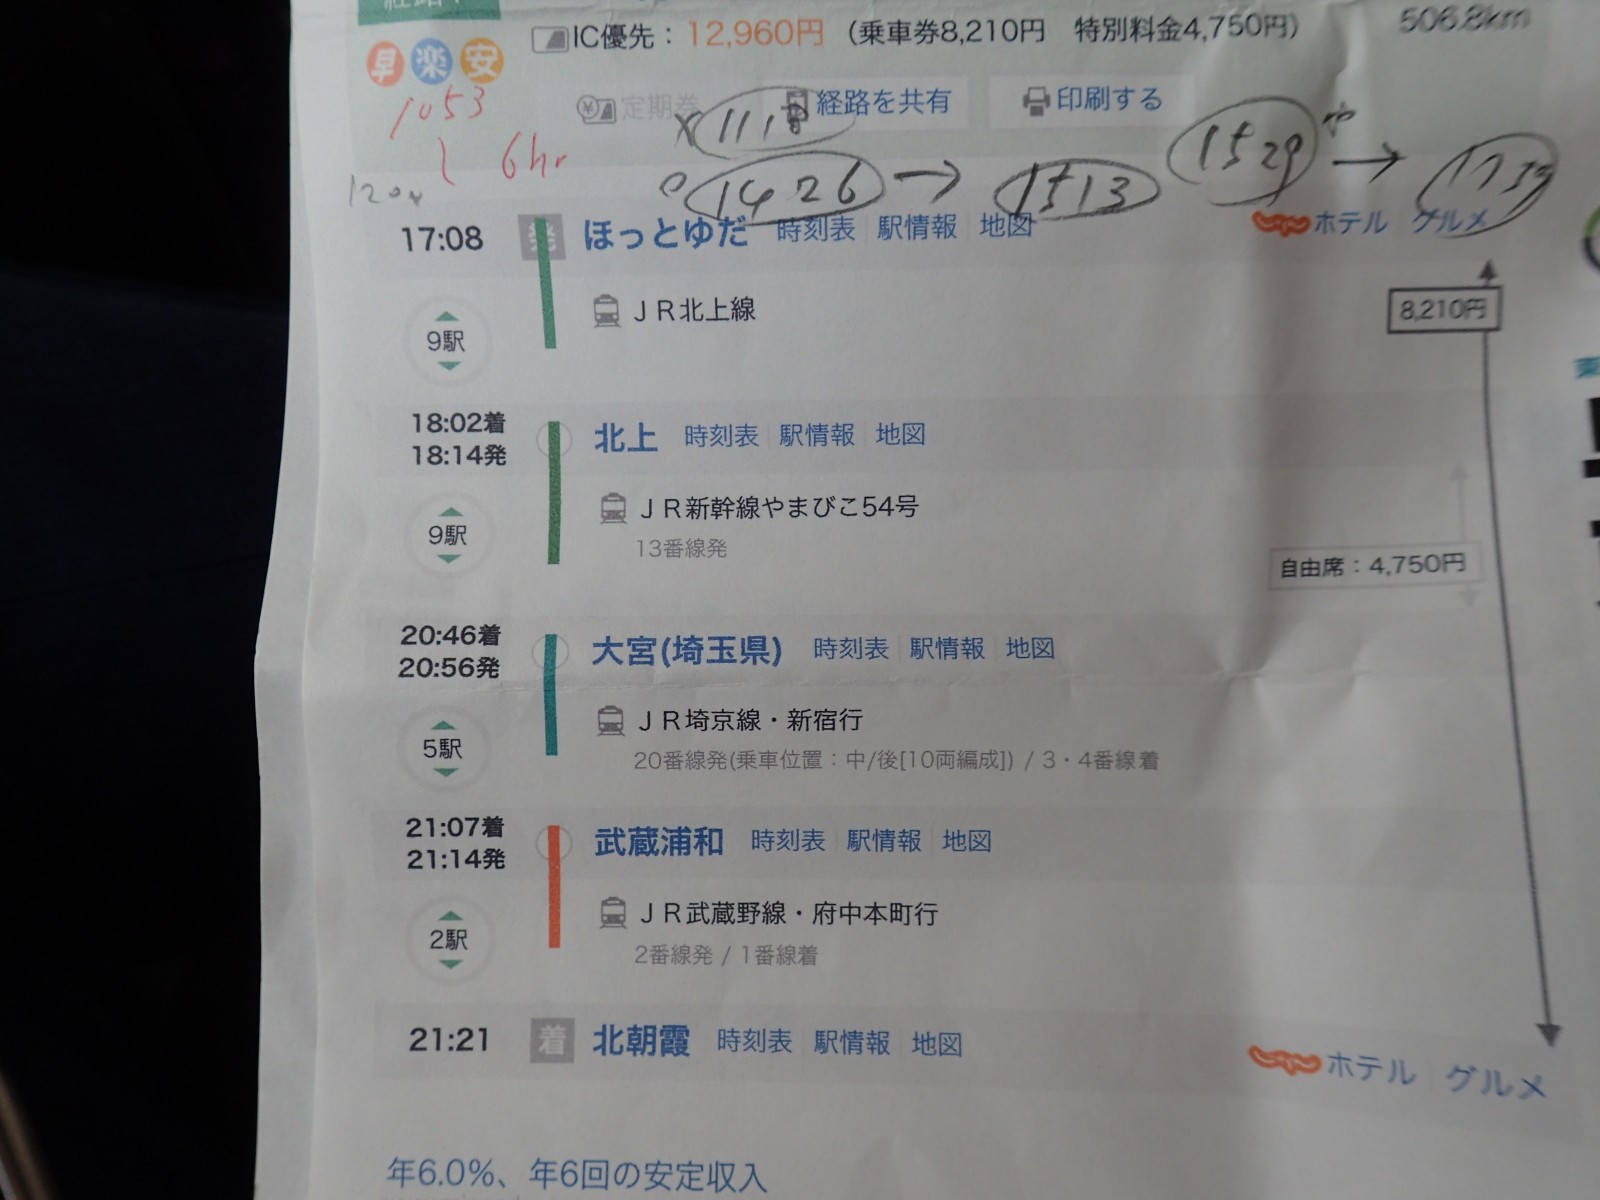 IC優先： 12,960円 （乗車券8,210円 特別料金4,750円） 506.8km
早 楽 安
定期券 経路を共有 印刷する
1053
6hr
1118
1426 → 1513 1529 →
17:08 発 ほっとゆだ 時刻表 駅情報 地図 ホテル グルメ
9駅 ＪＲ北上線
8,210円
18:02着
18:14発
北上 時刻表 駅情報 地図
9駅 ＪＲ新幹線やまびこ54号
13番線発
自由席：4,750円
20:46着
20:56発
大宮(埼玉県) 時刻表 駅情報 地図
5駅 ＪＲ埼京線・新宿行
20番線発(乗車位置：中/後[10両編成]) / 3・4番線着
21:07着
21:14発
武蔵浦和 時刻表 駅情報 地図
2駅 ＪＲ武蔵野線・府中本町行
2番線発 / 1番線着
21:21 着 北朝霞 時刻表 駅情報 地図 ホテル グルメ
年6.0%、年6回の安定収入